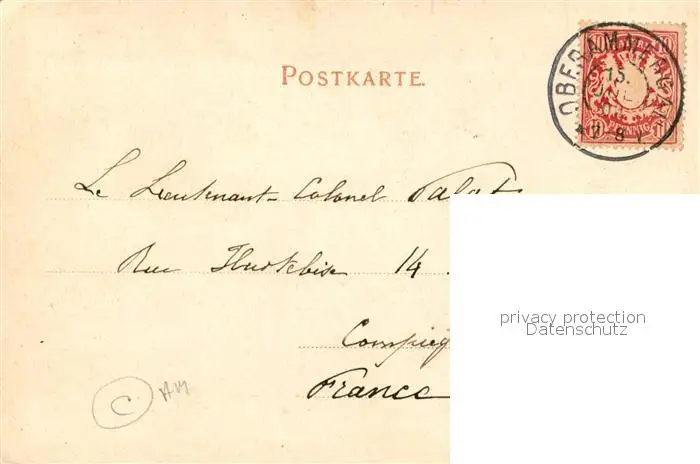 POSTKARTE.
OBERAMMERGAU
15.
PFENNIG
Le Lieutenant-Colonel Palat
Rue Hurtebise 14
Compieg
France
privacy protection
Datenschutz
C